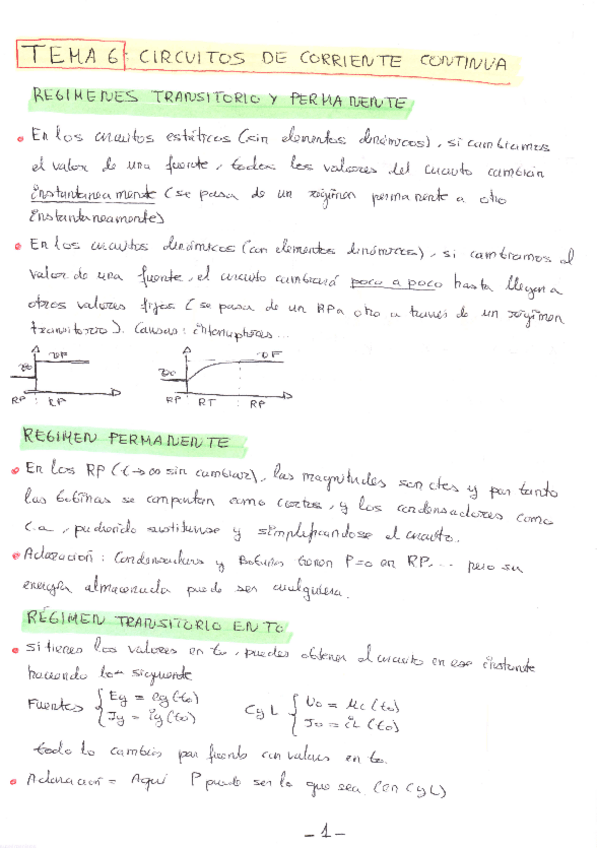 TEMA 6: CIRCUITOS DE CORRIENTE CONTINUA
REGIMENES TRANSITORIO Y PERMANENTE
• En los circuitos estáticos (sin elementos dinámicos), si cambiamos
el valor de una fuente, todos los valores del circuito cambian
instantaneamente (se pasa de un régimen permanente a otro
instantaneamente)
• En los circuitos dinámicos (con elementos dinámicos), si cambiamos el
valor de una fuente, el circuito cambiará poco a poco hasta llegar a
otros valores fijos (se pasa de un RP a otro a través de un régimen
transitorio). Causas: interruptores...
RP : RP
RP RT : RP
REGIMEN PERMANENTE
• En los RP (t→∞ sin cambiar), las magnitudes son ctes y por tanto
las bobinas se comportan como cortos, y los condensadores como
c.a, pudiendo sustituirse y simplificandose el circuito.
• Aclaración: Condensadores y Bobinas tienen P=0 en RP... pero su
energía almacenada puede ser cualquiera.
RÉGIMEN TRANSITORIO EN T0
• si tienes los valores en to, puedes obtener el circuito en ese instante
haciendo lo siguiente
Fuentes { Eg = eg(to)
Jg = ig(to)
C y L { Uo = uc(to)
Jo = iL(to)
todo lo cambias por fuente con valores en to.
• Aclaración = Aquí P puede ser lo que sea. (en C y L)
- 1 -